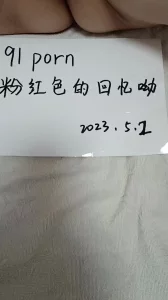 91 porn
粉红色的回忆呦
2023.5.1